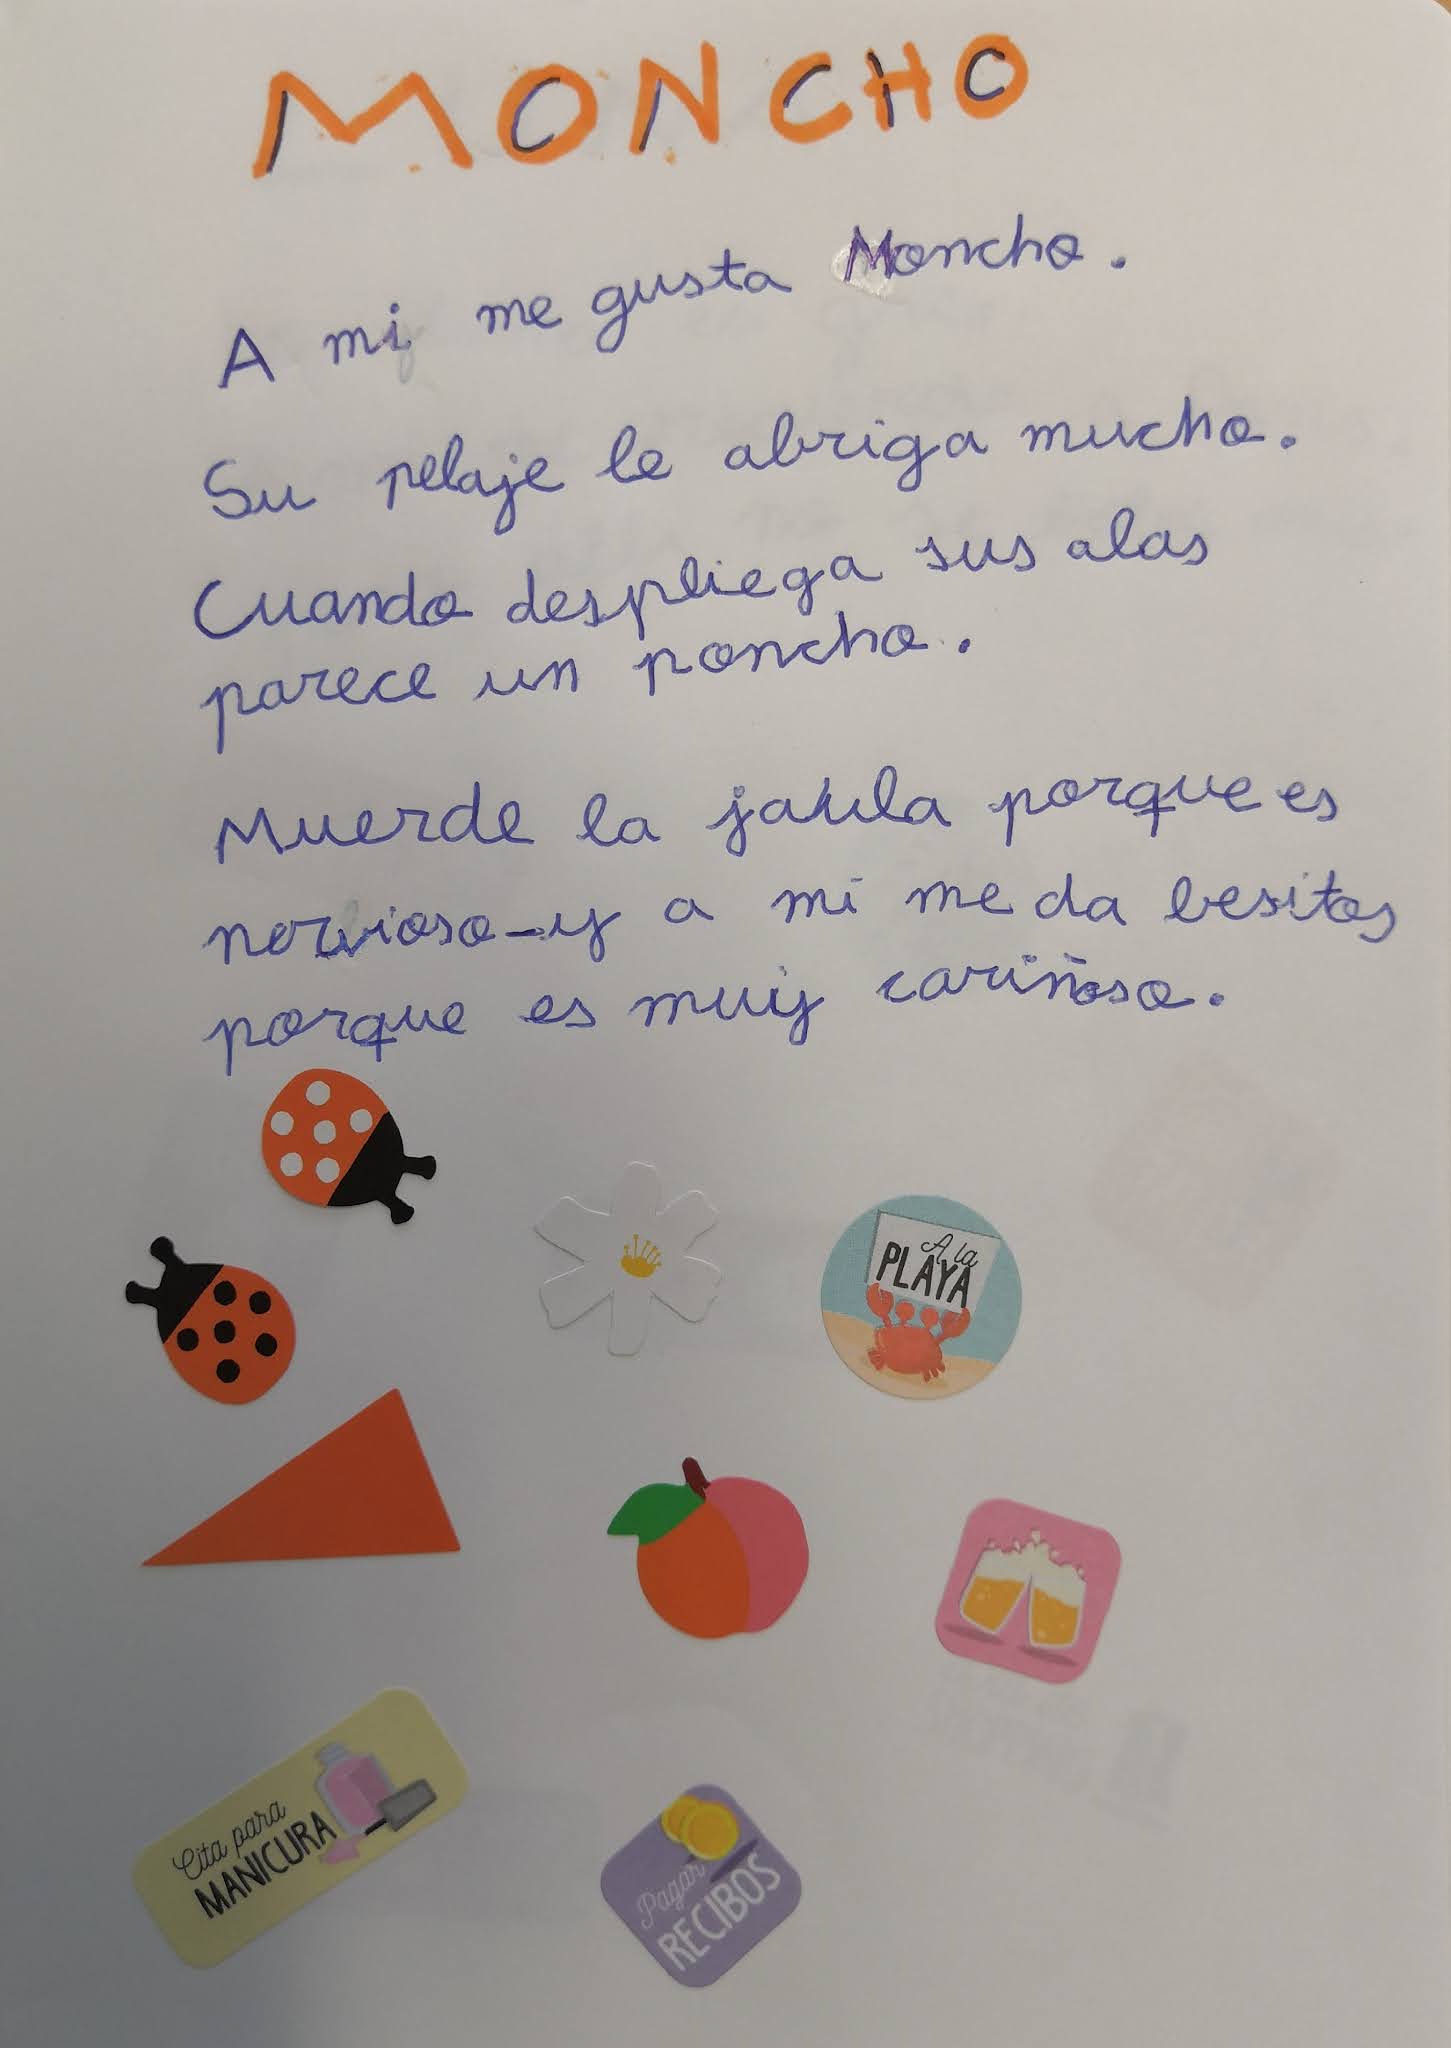 MONCHO
A mi me gusta Moncho.
Su pelaje le abriga mucho.
Cuando despliega sus alas
parece un poncho.
Muerde la jaula porque es
nervioso-y a mi me da besitos
porque es muy cariñoso.
A la
PLAYA
Cita para
MANICURA
Pagar
RECIBOS